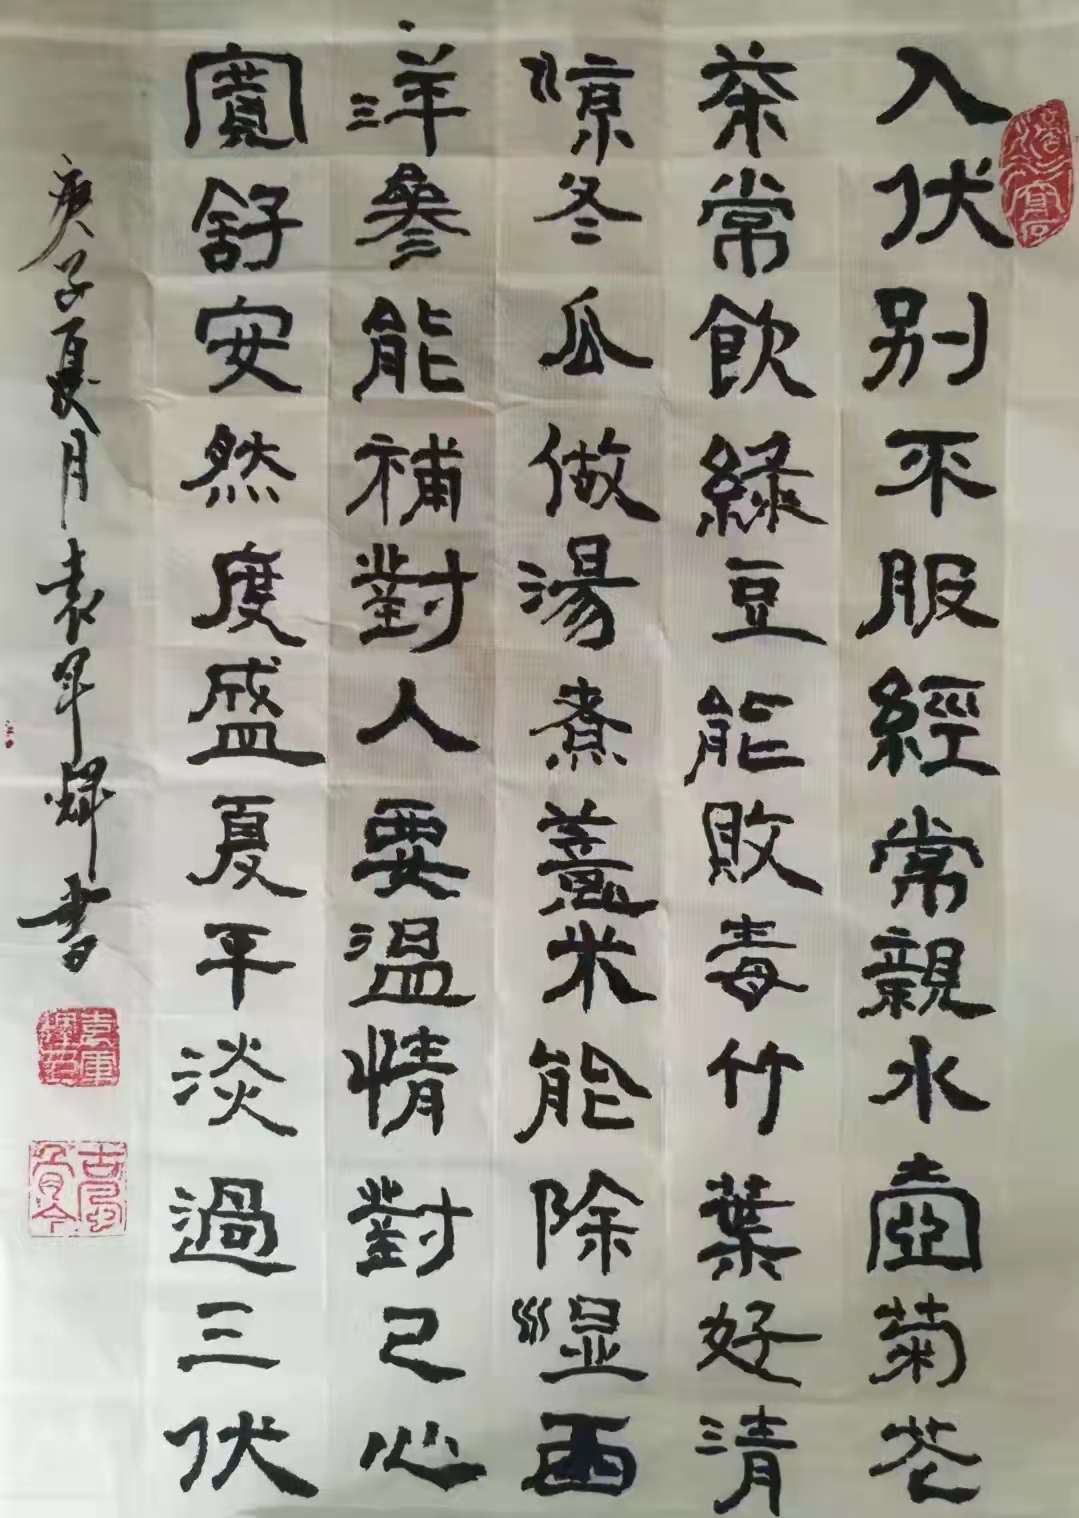 入伏别不服經常親水壺菊花
茶常飲綠豆能敗毒竹葉好清
凉冬瓜做湯煮薏米能除濕西
洋參能補對人要温情對己心
寬舒安然度盛夏平淡過三伏
庚子夏月袁军輝書